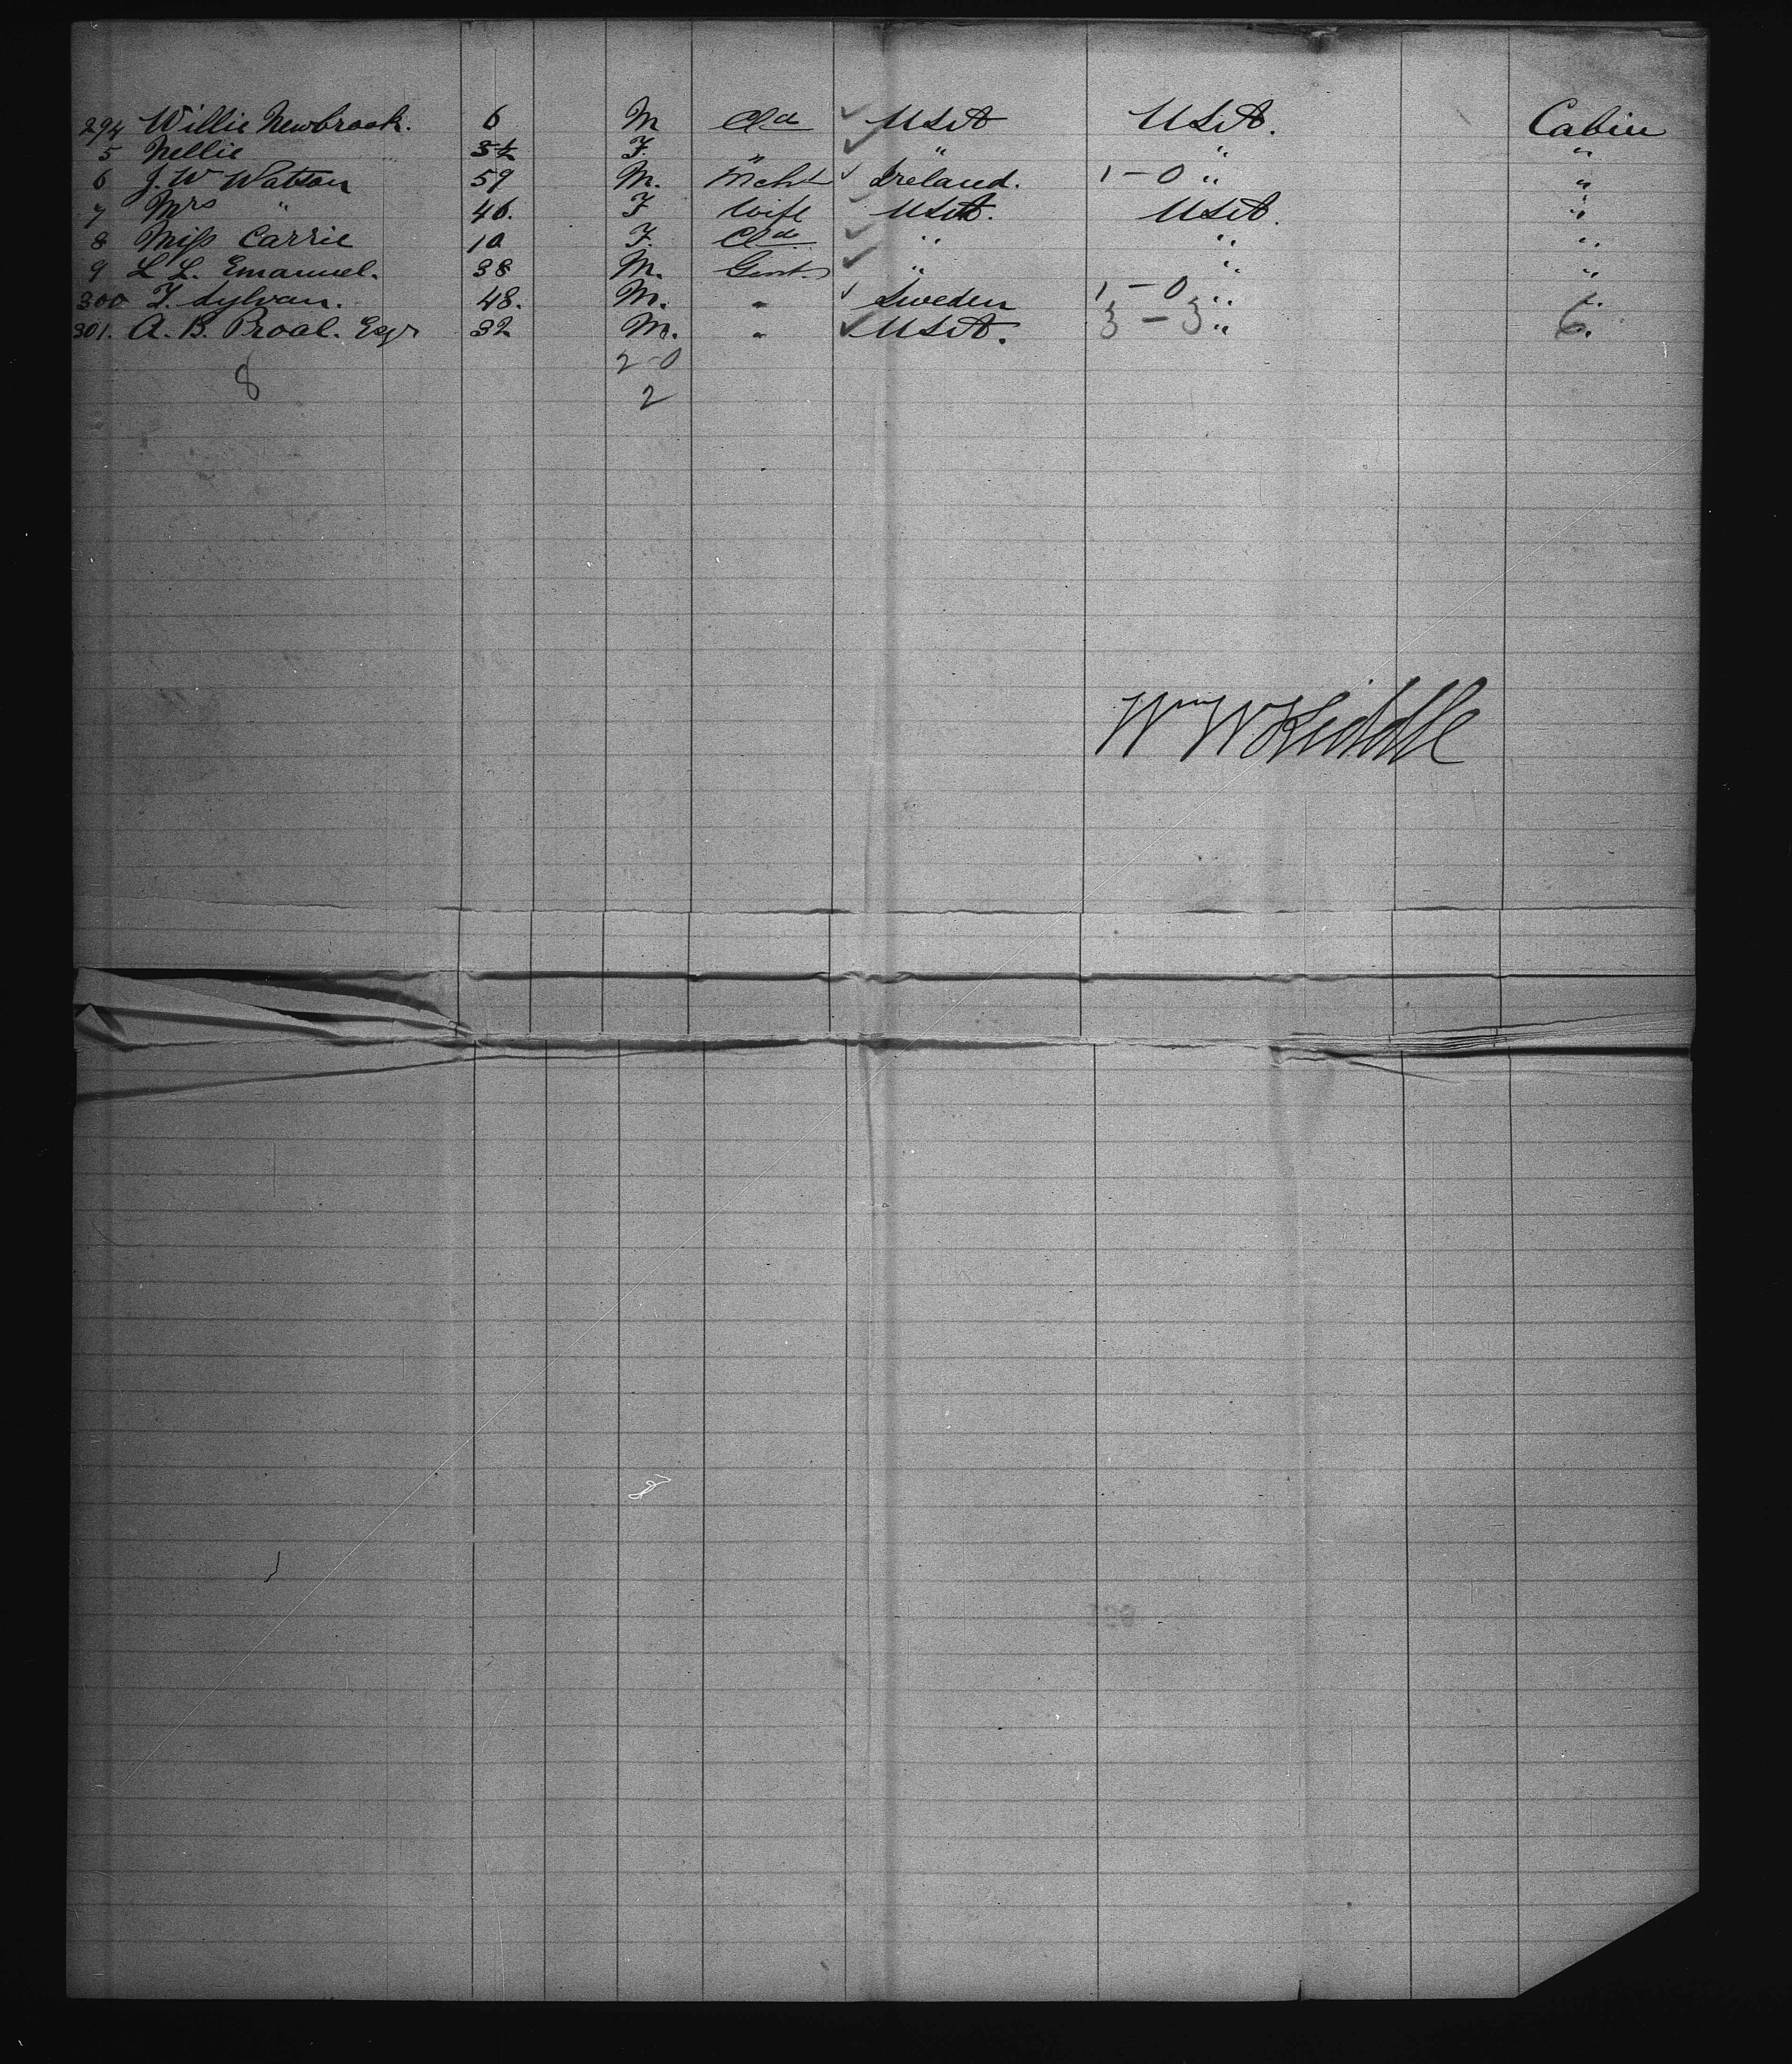 294 Willie Newbrook. 6 M Cld ✓ USA USA. Cabin
5 Nellie 3½ F. " ✓ " " "
6 J. W Watson 59 M. Mcht ✓ Ireland. 1 - 0 " "
7 Mrs " 46. F Wife ✓ USA. USA. "
8 Miss Carrie 10 F. Cld ✓ " " "
9 L L. Emanuel. 38 M. Gent. ✓ " " "
300 F. Sylvan. 48. M. " ✓ Sweden 1 - 0 " "
301. A. B. Proal. Esqr 32 M. " ✓ USA. 3 - 3 " 6.
8 2-0
2
Wm W Kiddle